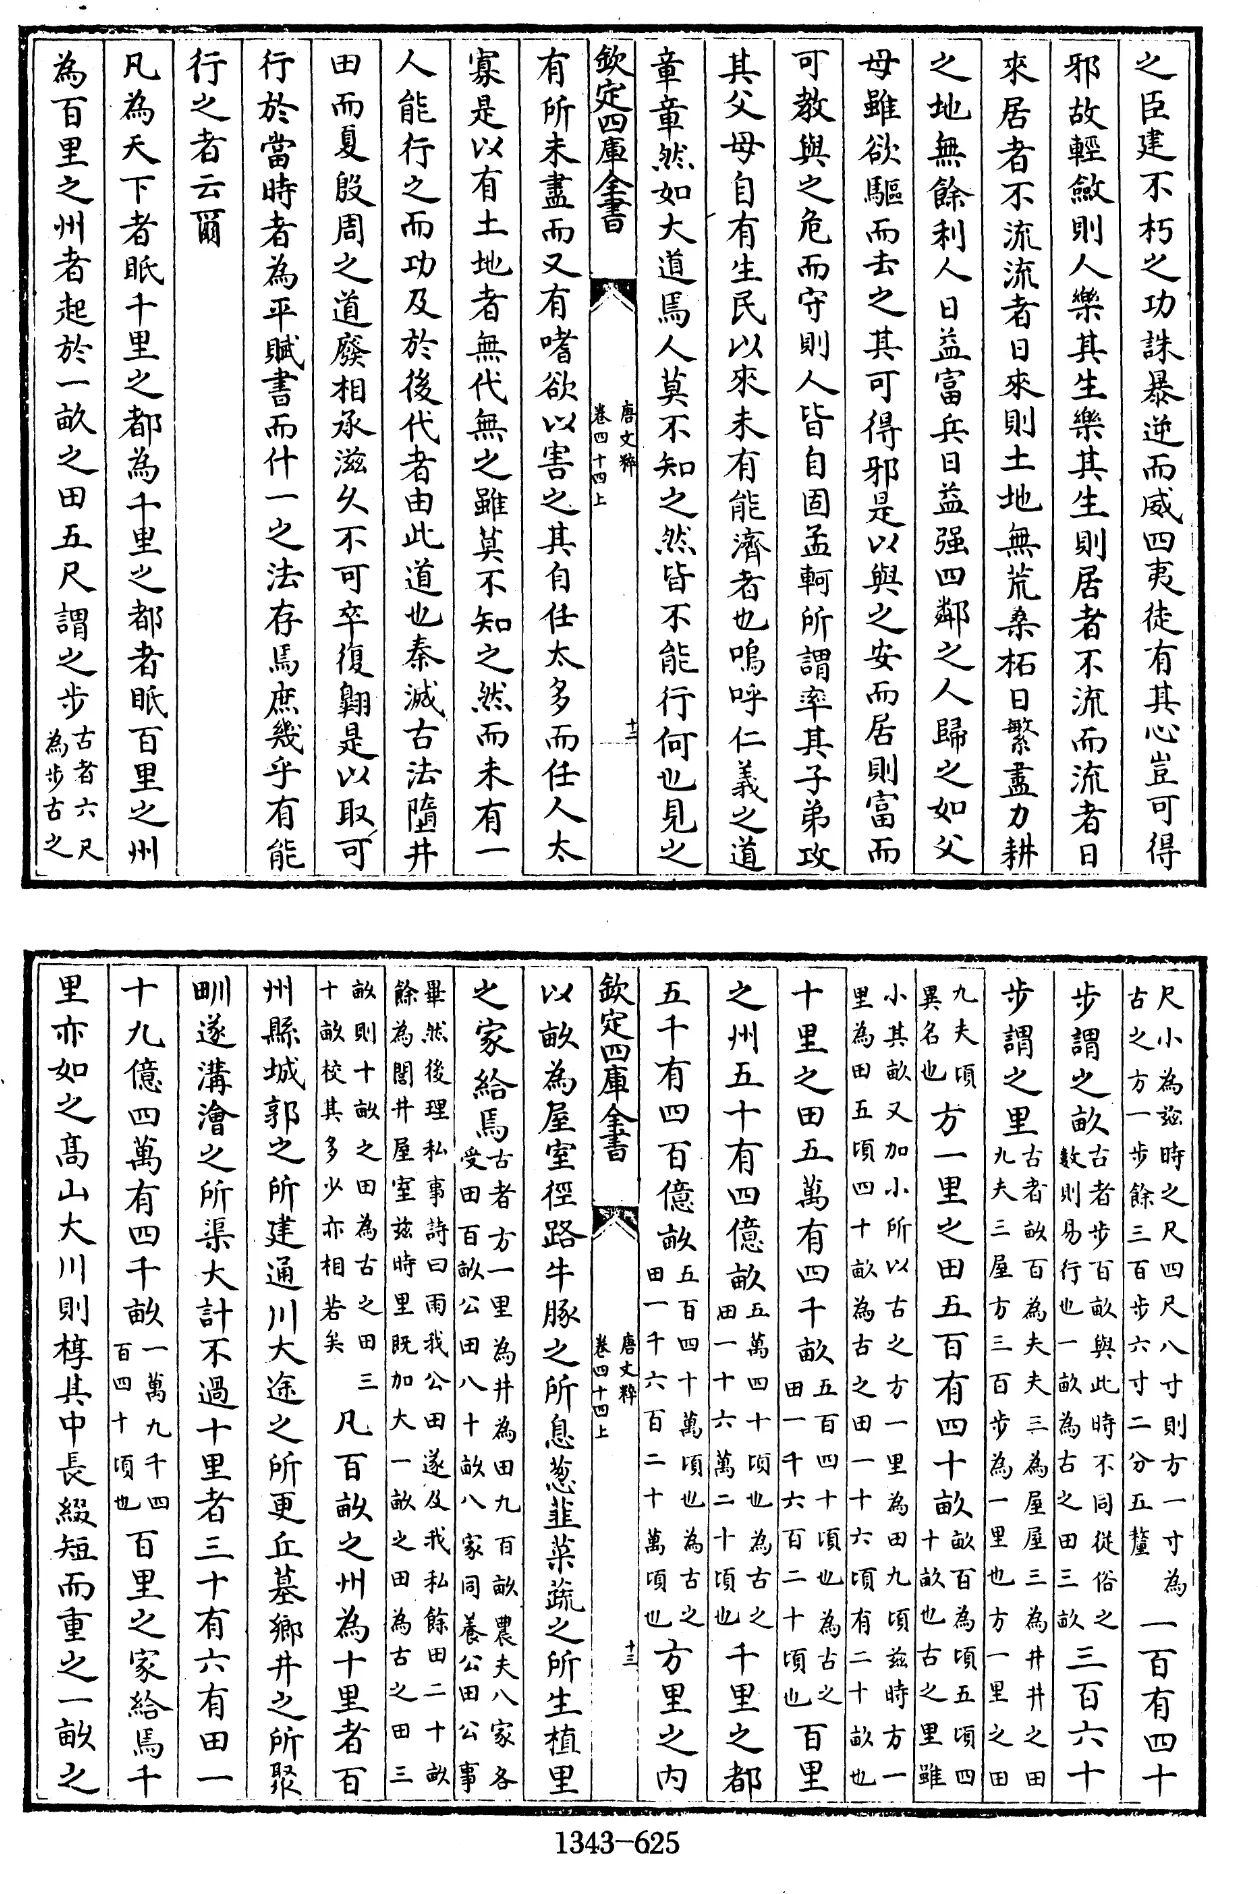 之臣建不朽之功誅暴逆而威四夷徒有其心豈可得
邪故輕斂則人樂其生樂其生則居者不流而流者日
來居者不流流者日來則土地無荒桑柘日繁盡力耕
之地無餘利人日益富兵日益强四鄰之人歸之如父
母雖欲驅而去之其可得邪是以與之安而居則富而
可教與之危而守則人皆自固孟軻所謂率其子弟攻
其父母自有生民以來未有能濟者也嗚呼仁義之道
章章然如大道焉人莫不知之然皆不能行何也見之
欽定四庫全書
唐文粹
卷四十四上
十二
有所未盡而又有嗜欲以害之其自任太多而任人太
寡是以有土地者無代無之雖莫不知之然而未有一
人能行之而功及於後代者由此道也秦滅古法隳井
田而夏殷周之道廢相承滋久不可卒復翱是以取可
行於當時者為平賦書而什一之法存焉庶幾乎有能
行之者云爾
凡為天下者眂千里之都為千里之都者眂百里之州
為百里之州者起於一畝之田五尺謂之步古者六尺為步古之
尺小為兹時之尺四尺八寸則方一寸為古之方一步餘三百步六寸二分五釐一百有四十
步謂之畝古者步百畝與此時不同從俗之數則易行也一畝為古之田三畝三百六十
步謂之里古者畝百為夫夫三為屋屋三為井井之田九夫三屋方三百步為一里也方一里之田
九夫頃異名也方一里之田五百有四十畝畝百為頃五頃四十畝也古之里雖
小其畝又加小所以古之方一里為田九頃兹時方一里為田五頃四十畝為古之田一十六頃有二十畝也
十里之田五萬有四千畝五百四十頃也為古之田一千六百二十頃也百里
之州五十有四億畝五萬四十頃也為古之田一十六萬二十頃也千里之都
五千有四百億畝五百四十萬頃也為古之田一千六百二十萬頃也方里之内
欽定四庫全書
唐文粹
卷四十四上
十三
以畝為屋室徑路牛豚之所息葱韭菜蔬之所生植里
之家給焉古者方一里為井為田九百畝農夫八家各受田百畝公田八十畝八家同養公田公事
畢然後理私事詩曰雨我公田遂及我私餘田二十畝餘為閭井屋室兹時里既加大一畝之田為古之田三
畝則十畝之田為古之田三十畝校其多少亦相若矣凡百畝之州為十里者百
州縣城郭之所建通川大途之所更丘墓鄉井之所聚
甽遂溝澮之所渠大計不過十里者三十有六有田一
十九億四萬有四千畝一萬九千四百四十頃也百里之家給焉千
里亦如之高山大川則椁其中長綴短而重之一畝之
1343-625